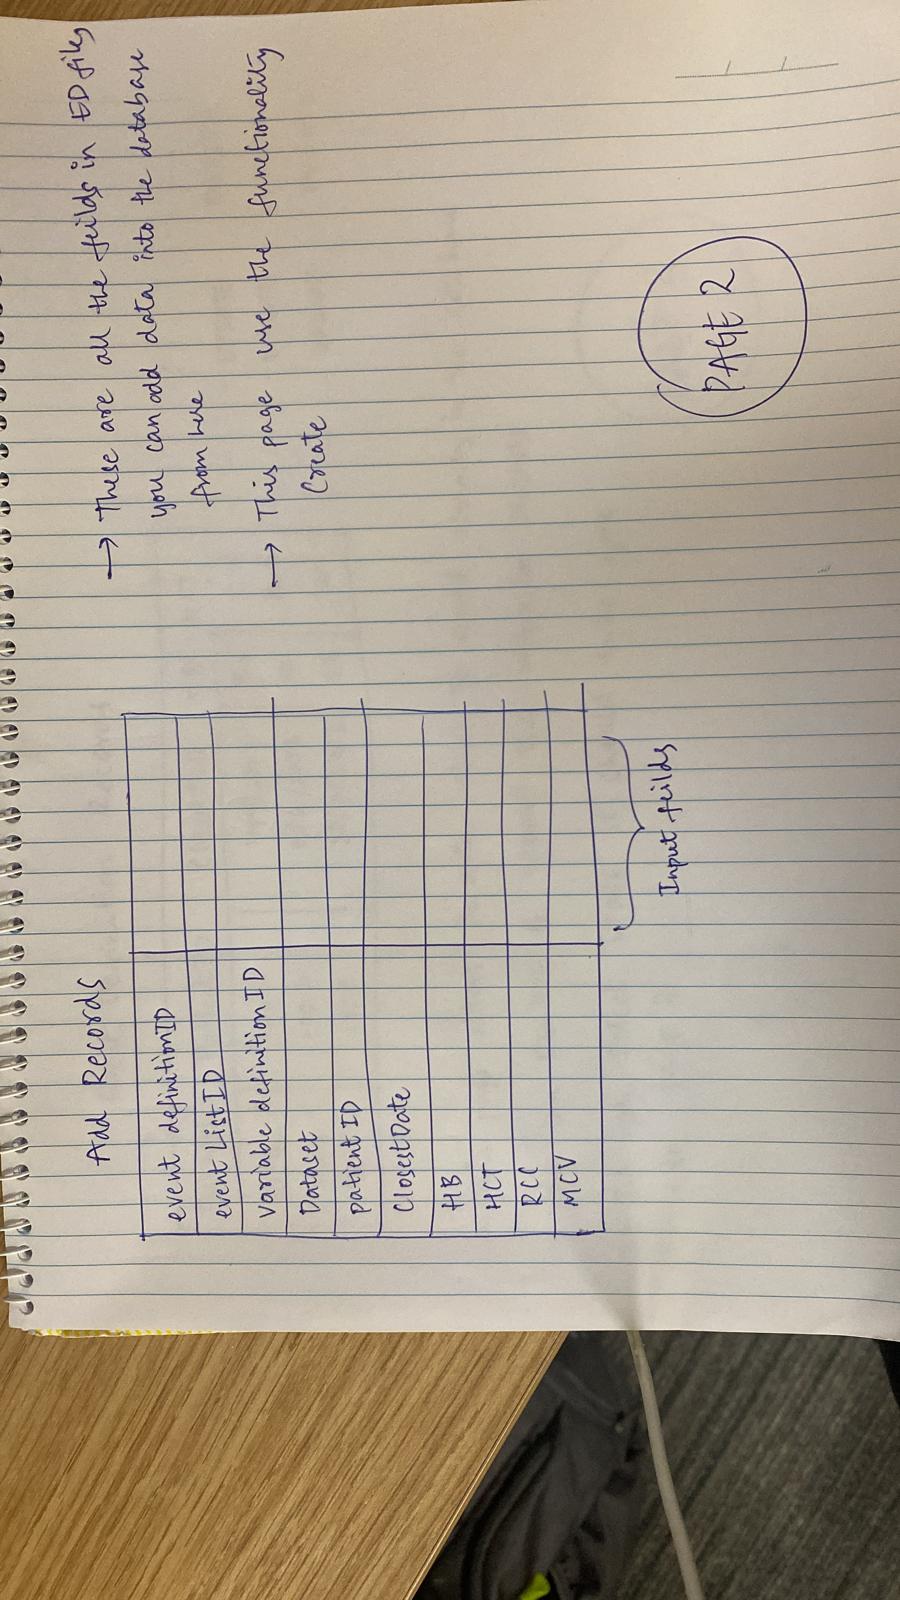 Add Records
event definitionID
event ListID
Variable definition ID
Dataset
patient ID
ClosestDate
HB
HCT
RCC
MCV
Input feilds
→ These are all the feilds in ED files
you can add data into the database
from here
→ This page use the functionality
Create
PAGE 2